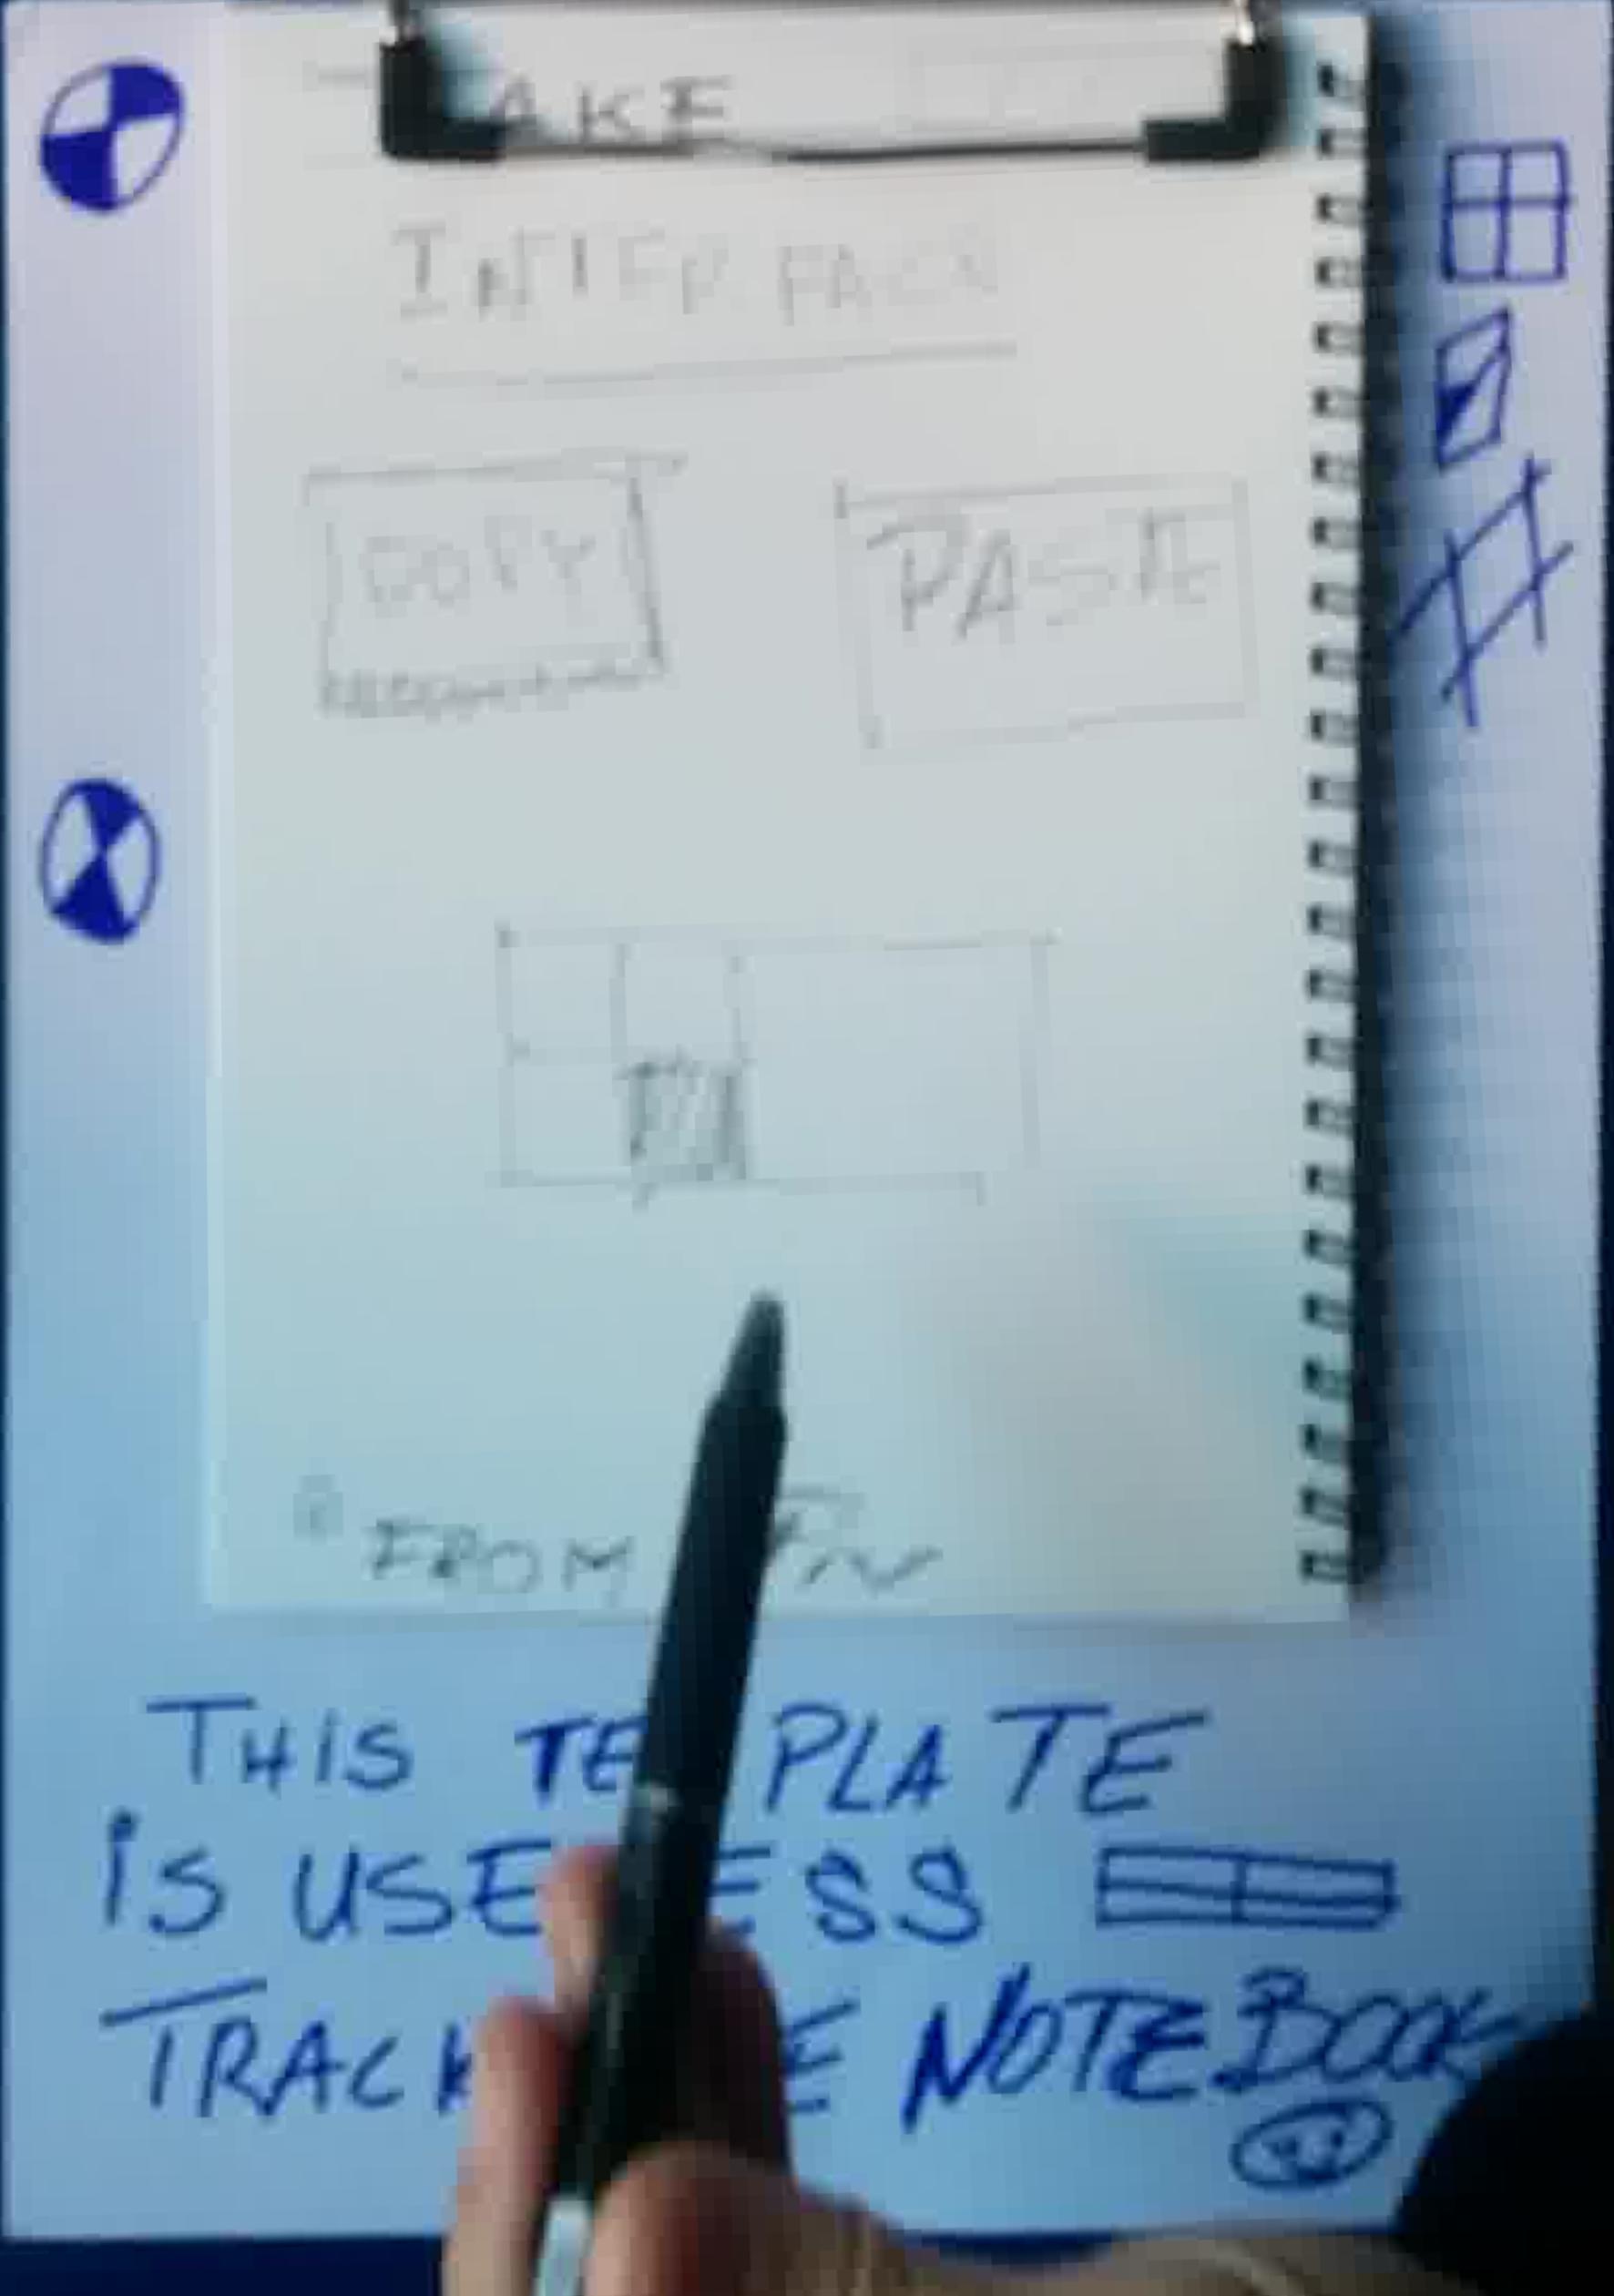 AKE
INTERFACE
COPY
PASTE
FROM
THIS TE PLATE
iS USE ESS
TRACK E NOTEBOOK